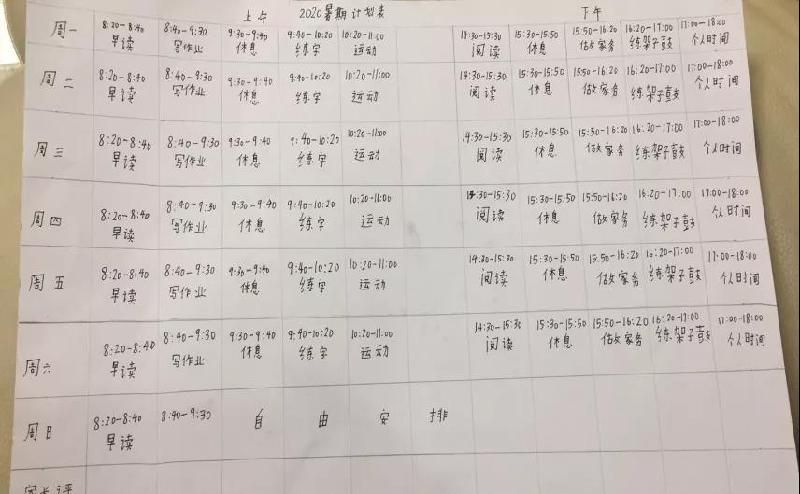 上午 2020暑期计划表 下午
周一 8:20-8:40 8:40-9:30 9:30-9:40 9:40-10:20 10:20-11:00 14:30-15:30 15:30-15:50 15:50-16:20 16:20-17:00 17:00-18:00
早读 写作业 休息 练字 运动 阅读 休息 做家务 练架子鼓 个人时间
周二 8:20-8:40 8:40-9:30 9:30-9:40 9:40-10:20 10:20-11:00 14:30-15:30 15:30-15:50 15:50-16:20 16:20-17:00 17:00-18:00
早读 写作业 休息 练字 运动 阅读 休息 做家务 练架子鼓 个人时间
周三 8:20-8:40 8:40-9:30 9:30-9:40 9:40-10:20 10:20-11:00 14:30-15:30 15:30-15:50 15:50-16:20 16:20-17:00 17:00-18:00
早读 写作业 休息 练字 运动 阅读 休息 做家务 练架子鼓 个人时间
周四 8:20-8:40 8:40-9:30 9:30-9:40 9:40-10:20 10:20-11:00 14:30-15:30 15:30-15:50 15:50-16:20 16:20-17:00 17:00-18:00
早读 写作业 休息 练字 运动 阅读 休息 做家务 练架子鼓 个人时间
周五 8:20-8:40 8:40-9:30 9:30-9:40 9:40-10:20 10:20-11:00 14:30-15:30 15:30-15:50 15:50-16:20 16:20-17:00 17:00-18:00
早读 写作业 休息 练字 运动 阅读 休息 做家务 练架子鼓 个人时间
周六 8:20-8:40 8:40-9:30 9:30-9:40 9:40-10:20 10:20-11:00 14:30-15:30 15:30-15:50 15:50-16:20 16:20-17:00 17:00-18:00
早读 写作业 休息 练字 运动 阅读 休息 做家务 练架子鼓 个人时间
周日 8:20-8:40 8:40-9:30 自由安排
早读